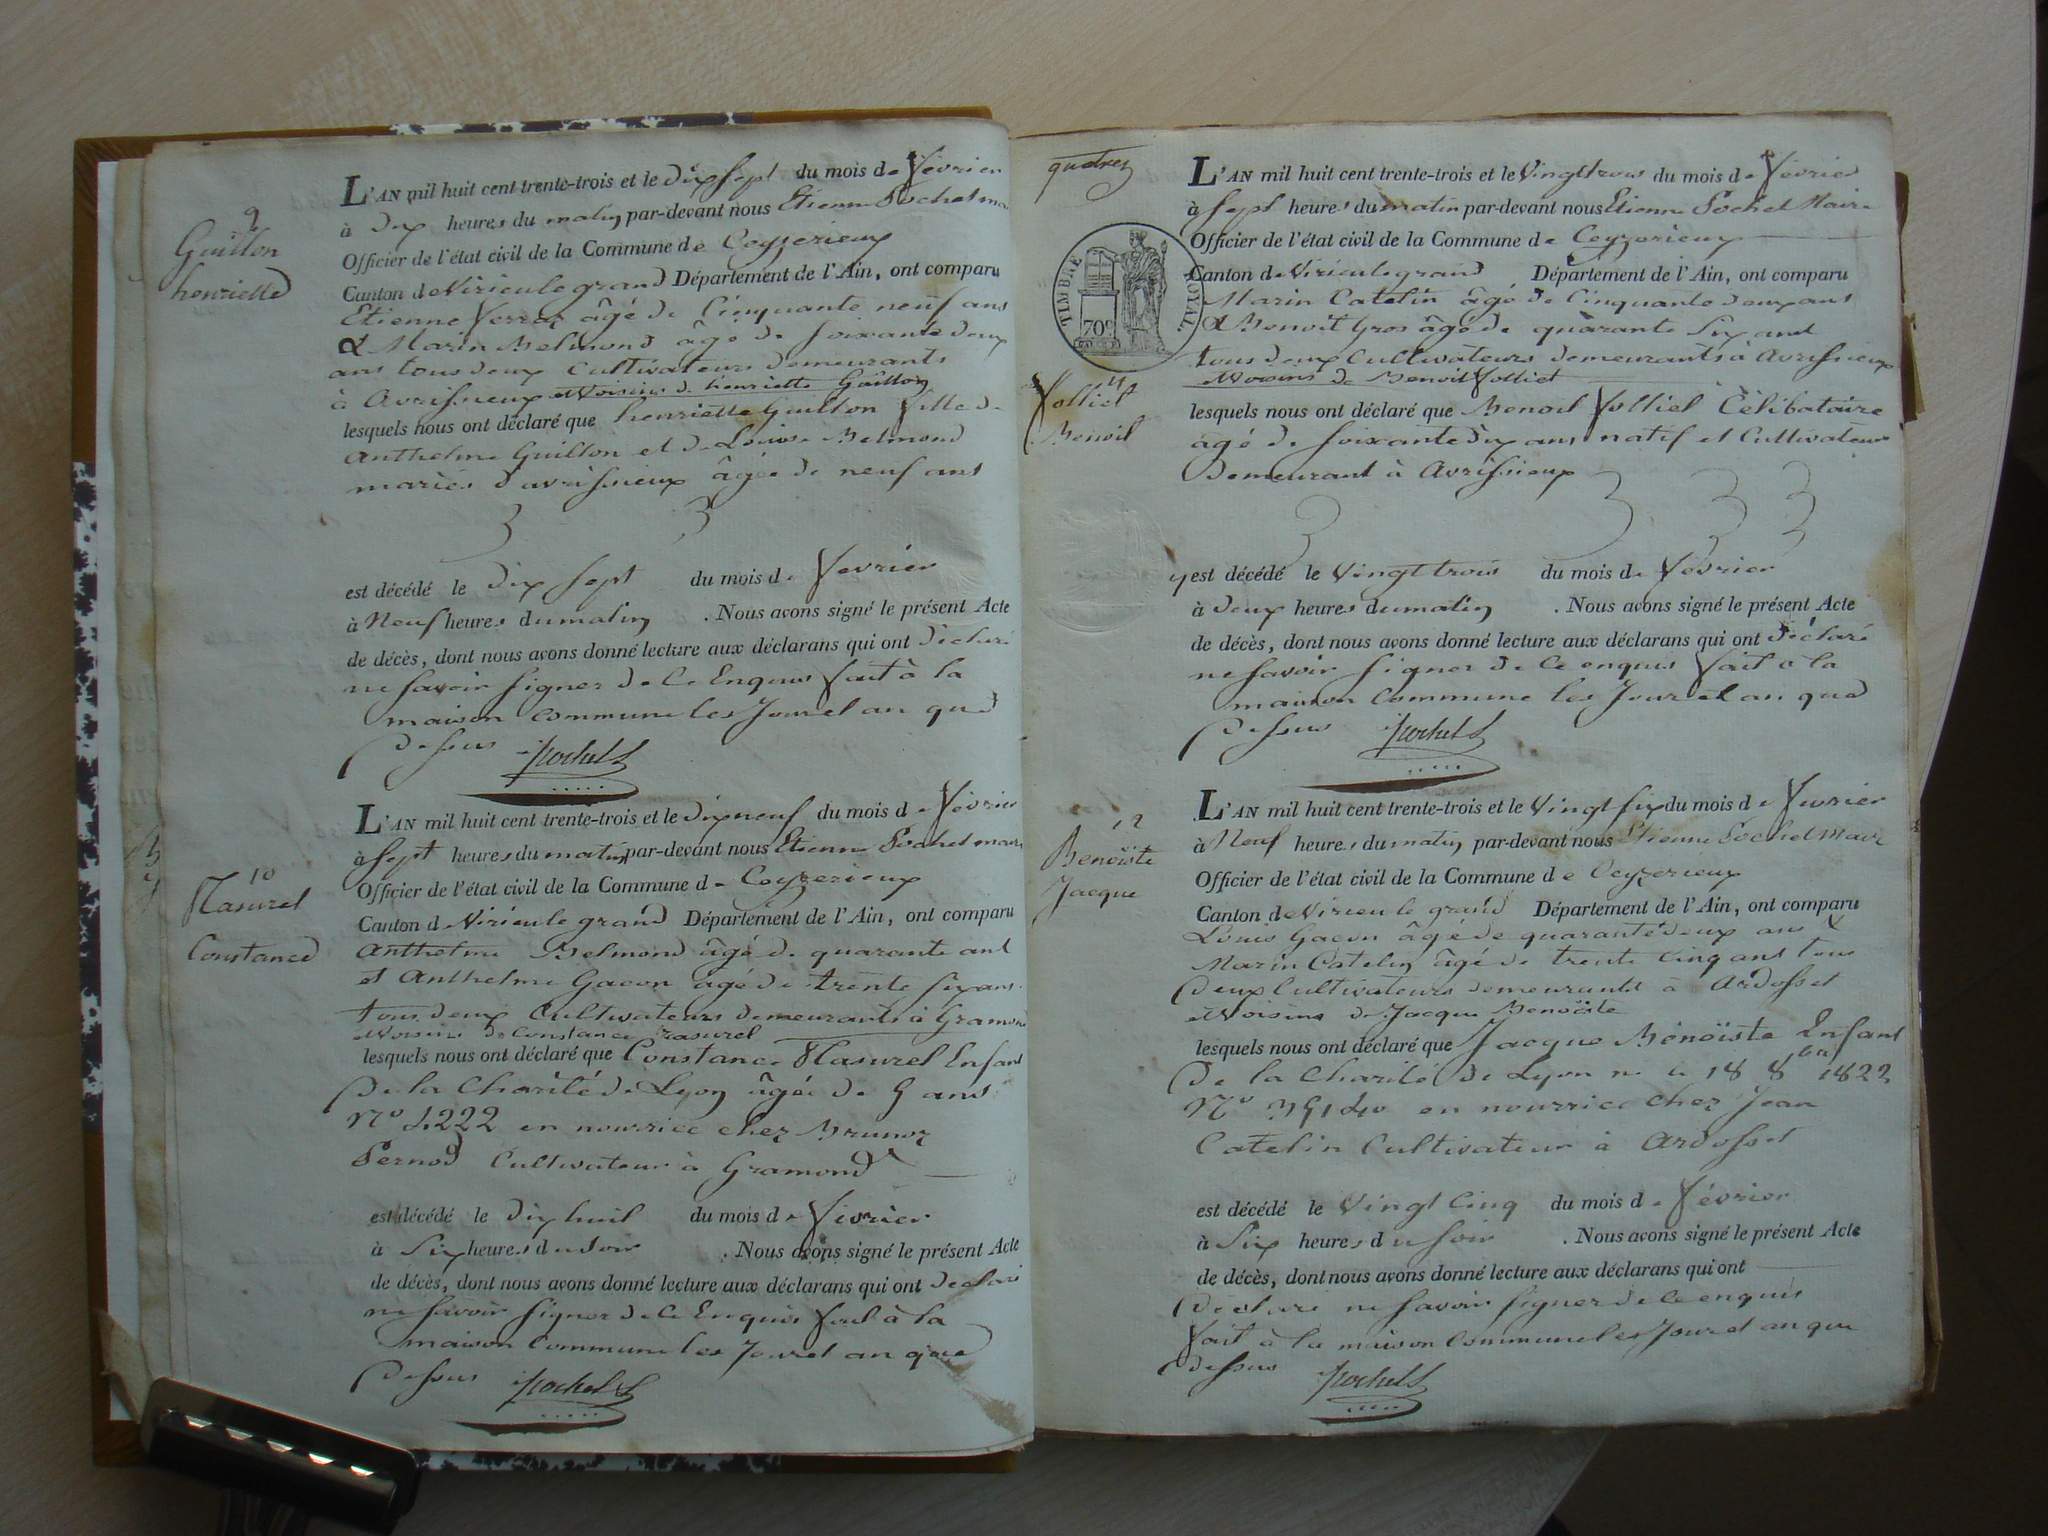 9
Guillon
henriette
L'AN mil huit cent trente-trois et le dix sept du mois de février
à dix heures du matin par-devant nous Etienne Pochet ma
Officier de l'état civil de la Commune de Ceyzerieux
Canton de Virieu le grand Département de l'Ain, ont comparu
Etienne âgé de Cinquante neuf ans
& Marin Belmond âgé de soixante deux
ans tous deux Cultivateurs demeurants
à Avrissieux et Voisins de henriette Guillon
lesquels nous ont déclaré que henriette Guillon fille de
Anthelme Guillon et de Louise Belmond
mariés d'avrissieux âgée de neuf ans
est décédé le dix sept du mois de fevrier
à Neuf heures du matin . Nous avons signé le présent Acte
de décès, dont nous avons donné lecture aux déclarans qui ont déclaré
ne savoir signer de ce Enquis fait à la
maison Commune les Jour et an que
dessus Pochet
10
Rasurel
Constance
L'AN mil huit cent trente-trois et le dix neuf du mois de février
à sept heures du matin par-devant nous Etienne Pochet maire
Officier de l'état civil de la Commune de Ceyzerieux
Canton de Virieu le grand Département de l'Ain, ont comparu
Anthelme Belmond âgé de quarante ans
et Anthelme Gacon âgé de trente six ans
tous deux Cultivateurs demeurants à Gramond
et Voisins de Constance rasurel
lesquels nous ont déclaré que Constance Rasurel Enfant
de la Charité de Lyon âgée de 9 ans
N° 4222 en nourrice chez
Pernod Cultivateur à Gramond
est décédé le dix huit du mois de février
à Six heures du soir . Nous avons signé le présent Acte
de décès, dont nous avons donné lecture aux déclarans qui ont declaré
ne savoir signer de ce Enquis fait à la
maison Commune les Jour et an que
dessus Pochet
quatre
TIMBRE ROYAL
70c
11
Volliet
Benoit
L'AN mil huit cent trente-trois et le Vingt trois du mois de février
à sept heures du matin par-devant nous Etienne Pochet Maire
Officier de l'état civil de la Commune de Ceyzerieux
Canton de Virieu le grand Département de l'Ain, ont comparu
Marin Catelin âgé de Cinquante deux ans
& Benoit Gros âgé de quarante Six ans
tous deux Cultivateurs demeurants à Avrissieux
et Voisins de Benoit Volliet
lesquels nous ont déclaré que Benoit Volliet Célibataire
âgé de soixante dix ans natif et Cultivateur
Demeurant à Avrissieux
y est décédé le Vingt trois du mois de février
à deux heures du matin . Nous avons signé le présent Acte
de décès, dont nous avons donné lecture aux déclarans qui ont déclaré
ne savoir signer de ce enquis fait à la
maison Commune les Jour et an que
dessus Pochet
12
Benoïste
Jacque
L'AN mil huit cent trente-trois et le Vingt six du mois de fevrier
à Neuf heures du matin par-devant nous Etienne Pochet Maire
Officier de l'état civil de la Commune de Ceyzerieux
Canton de Virieu le grand Département de l'Ain, ont comparu
Louis Gacon âgé de quarante deux ans &
Marin Catelin âgé de trente Cinq ans tous
deux Cultivateurs demeurants à Ardosset
et Voisins de Jacque Benoïste
lesquels nous ont déclaré que Jacque Benoïste Enfant
de la Charité de Lyon né le 18 8bre 1822
N° en nourrice chez Jean
Catelin Cultivateur à Ardosset
est décédé le Vingt Cinq du mois de février
à Six heures du soir . Nous avons signé le présent Acte
de décès, dont nous avons donné lecture aux déclarans qui ont
declaré ne savoir signer de ce enquis
fait à la maison Commune les Jour et an que
dessus Pochet